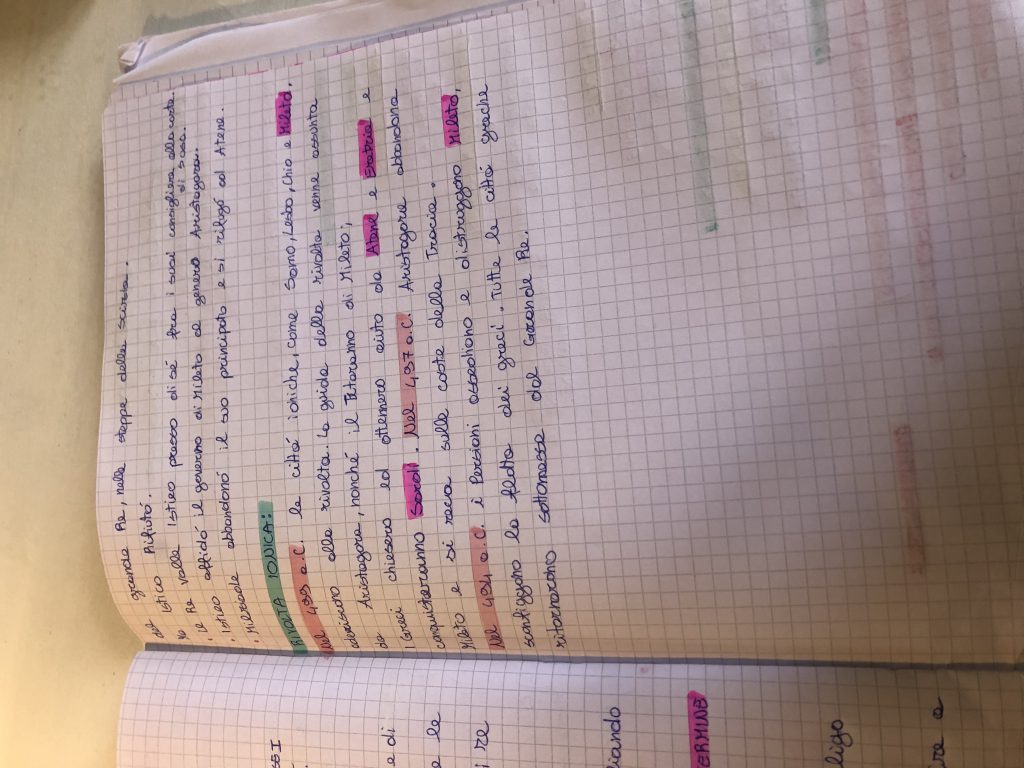 del grande Re, nelle steppe della Scizia.
Istieo Rifiutò.
Re volle Istieo presso di sé fra i suoi consiglieri alla corte di Susa.
• il Re affidò il governo di Mileto al genero Aristagora.
Istieo
• Milziade abbandonò il suo principato e si rifugò ad Atene.
RIVOLTA IONICA:
Nel 499 a.C. le città ioniche, come Samo, Lesbo, Chio e Mileto.
alla rivolta. La guida della rivolta venne assunta
da Aristagora, nonché il Tetoranno di Mileto;
I Greci chiesero ed ottennero aiuto da Atene e Eretria e
conquisteranno Sardi. Nel 497 a.C. Aristagora abbandona
Mileto e si reca sulle coste della Tracia.
Nel 494 a.C. i Persiani assediano e distruggono Mileto,
sconfiggono la flotta dei greci. Tutte le città greche
ritornarono sottomesse dal Grande Re.
e di
e le
re
ERMINA
ligo
re a